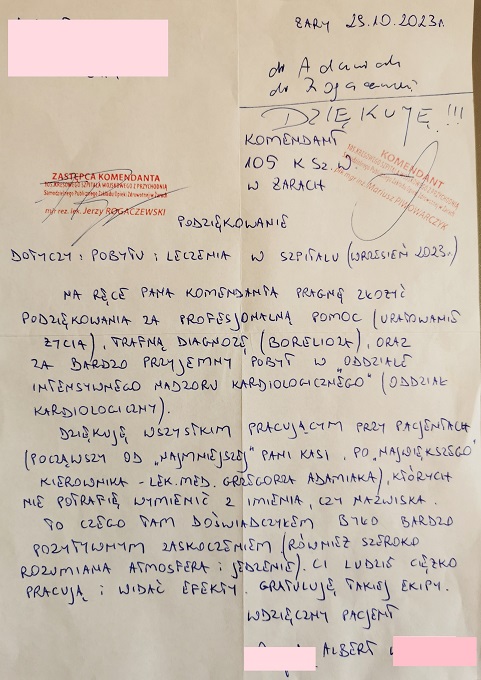 ŻARY 25.10.2023r.
dr Adamiak
dr Rogaczewski
DZIĘKUJĘ!!!
KOMENDANT
105 KSzW
W ŻARACH
ZASTĘPCA KOMENDANTA
105 KRESOWEGO SZPITALA WOJSKOWEGO Z PRZYCHODNIĄ
Samodzielnego Publicznego Zakładu Opieki Zdrowotnej w Żarach
mjr rez. lek. Jerzy ROGACZEWSKI
KOMENDANT
Mariusz PIWOWARCZYK
PODZIĘKOWANIE
DOTYCZY: POBYTU I LECZENIA W SZPITALU (WRZESIEŃ 2023.)
NA RĘCE PANA KOMENDANTA PRAGNĘ ZŁOŻYĆ
PODZIĘKOWANIA ZA PROFESJONALNĄ POMOC (URATOWANIE
ŻYCIA), TRAFNĄ DIAGNOZĘ (BORELIOZA), ORAZ
ZA BARDZO PRZYJEMNY POBYT W „ODDZIALE
INTENSYWNEGO NADZORU KARDIOLOGICZNEGO" (ODDZIAŁ
KARDIOLOGICZNY).
DZIĘKUJĘ WSZYSTKIM PRACUJĄCYM PRZY PACJENTACH
(POCZĄWSZY OD „NAJMNIEJSZEJ" PANI KASI, PO „NAJWIĘKSZEGO"
KIEROWNIKA - LEK. MED. GRZEGORZA ADAMIAKA), KTÓRYCH
NIE POTRAFIĘ WYMIENIĆ Z IMIENIA, CZY NAZWISKA.
TO CZEGO TAM DOŚWIADCZYŁEM BYŁO BARDZO
POZYTYWNYM ZASKOCZENIEM (RÓWNIEŻ SZEROKO
ROZUMIANA ATMOSFERA I JEDZENIE). CI LUDZIE CIĘŻKO
PRACUJĄ I WIDAĆ EFEKTY. GRATULUJĘ TAKIEJ EKIPY.
WDZIĘCZNY PACJENT
ALBERT